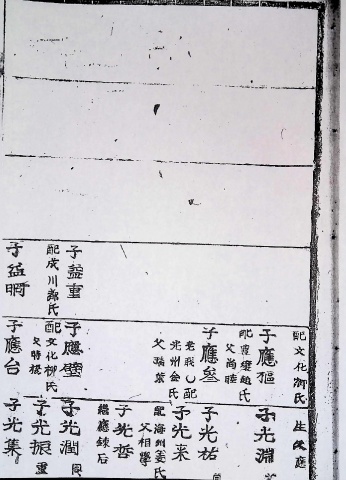 配文化柳氏
生父應
子光淵
子應樞
父尚睦
子光祐
子應參
光州金氏
父瑞葉
子光来
配海州姜氏
父相學
子光哲
繼應鍊后
子益重
配成川鄭氏
子應璧
配文化柳氏
子光潤
子光振
子益明
子應台
子光集